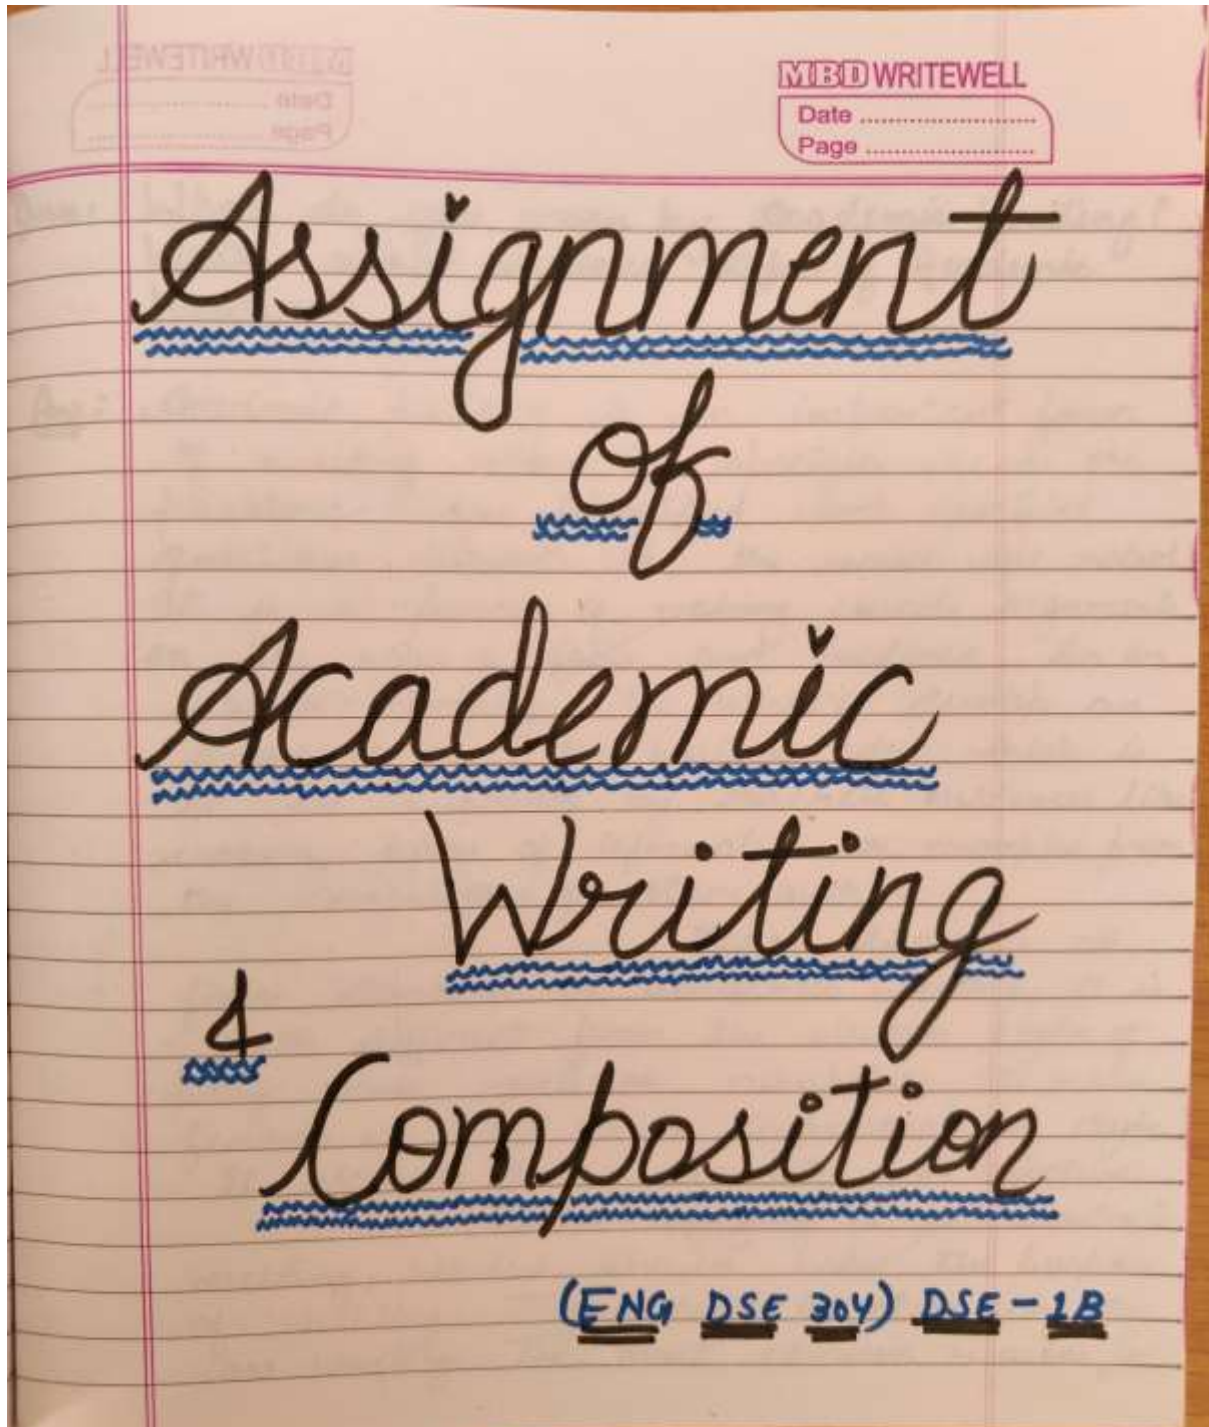 MBD WRITEWELL
Date
Page
Assignment
of
Academic
Writing
&
Composition
(ENG DSE 304) DSE - 1B